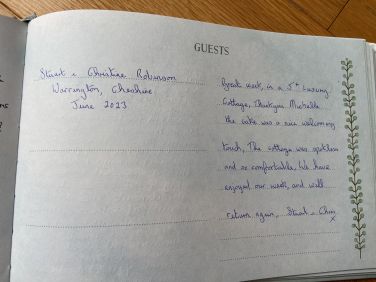 GUESTS
Stuart & Christine Robinson
Warrington, Cheshire
June 2023
Great week, in a 5* Luxury
Cottage, Thankyou Michelle
the cake was a nice welcoming
touch, The cottage was spotless
and so comfortable, We have
enjoyed our week, and will
return again, Stuart & Chris
x